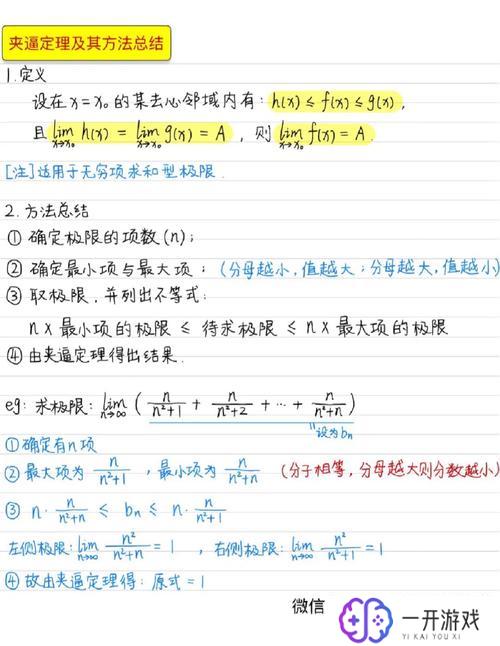 夹逼定理及其方法总结
1.定义
设在x=x₀的某去心邻域内有: h(x)≤f(x)≤g(x),
且 lim_{x→x₀} h(x) = lim_{x→x₀} g(x) = A , 则 lim_{x→x₀} f(x) = A.
[注]适用于无穷项求和型极限.
2.方法总结
① 确定极限的项数(n);
② 确定最小项与最大项; (分母越小,值越大;分母越大,值越小)
③ 取极限,并列出不等式:
n×最小项的极限 ≤ 待求极限 ≤ n×最大项的极限
④ 由夹逼定理得出结果.
eg: 求极限: lim_{n→∞} ( n/(n²+1) + n/(n²+2) + ⋯ + n/(n²+n) )
"设为bₙ
①确定有n项
② 最大项为 n/(n²+1) , 最小项为 n/(n²+n) (分子相等,分母越大则分数越小)
③ n· n/(n²+n) ≤ bₙ ≤ n· n/(n²+1)
左侧极限: lim_{n→∞} n²/(n²+n) = 1 , 右侧极限: lim_{n→∞} n²/(n²+1) = 1
④ 故由夹逼定理得: 原式 = 1
微信
一开游戏
YI KAI YOU XI